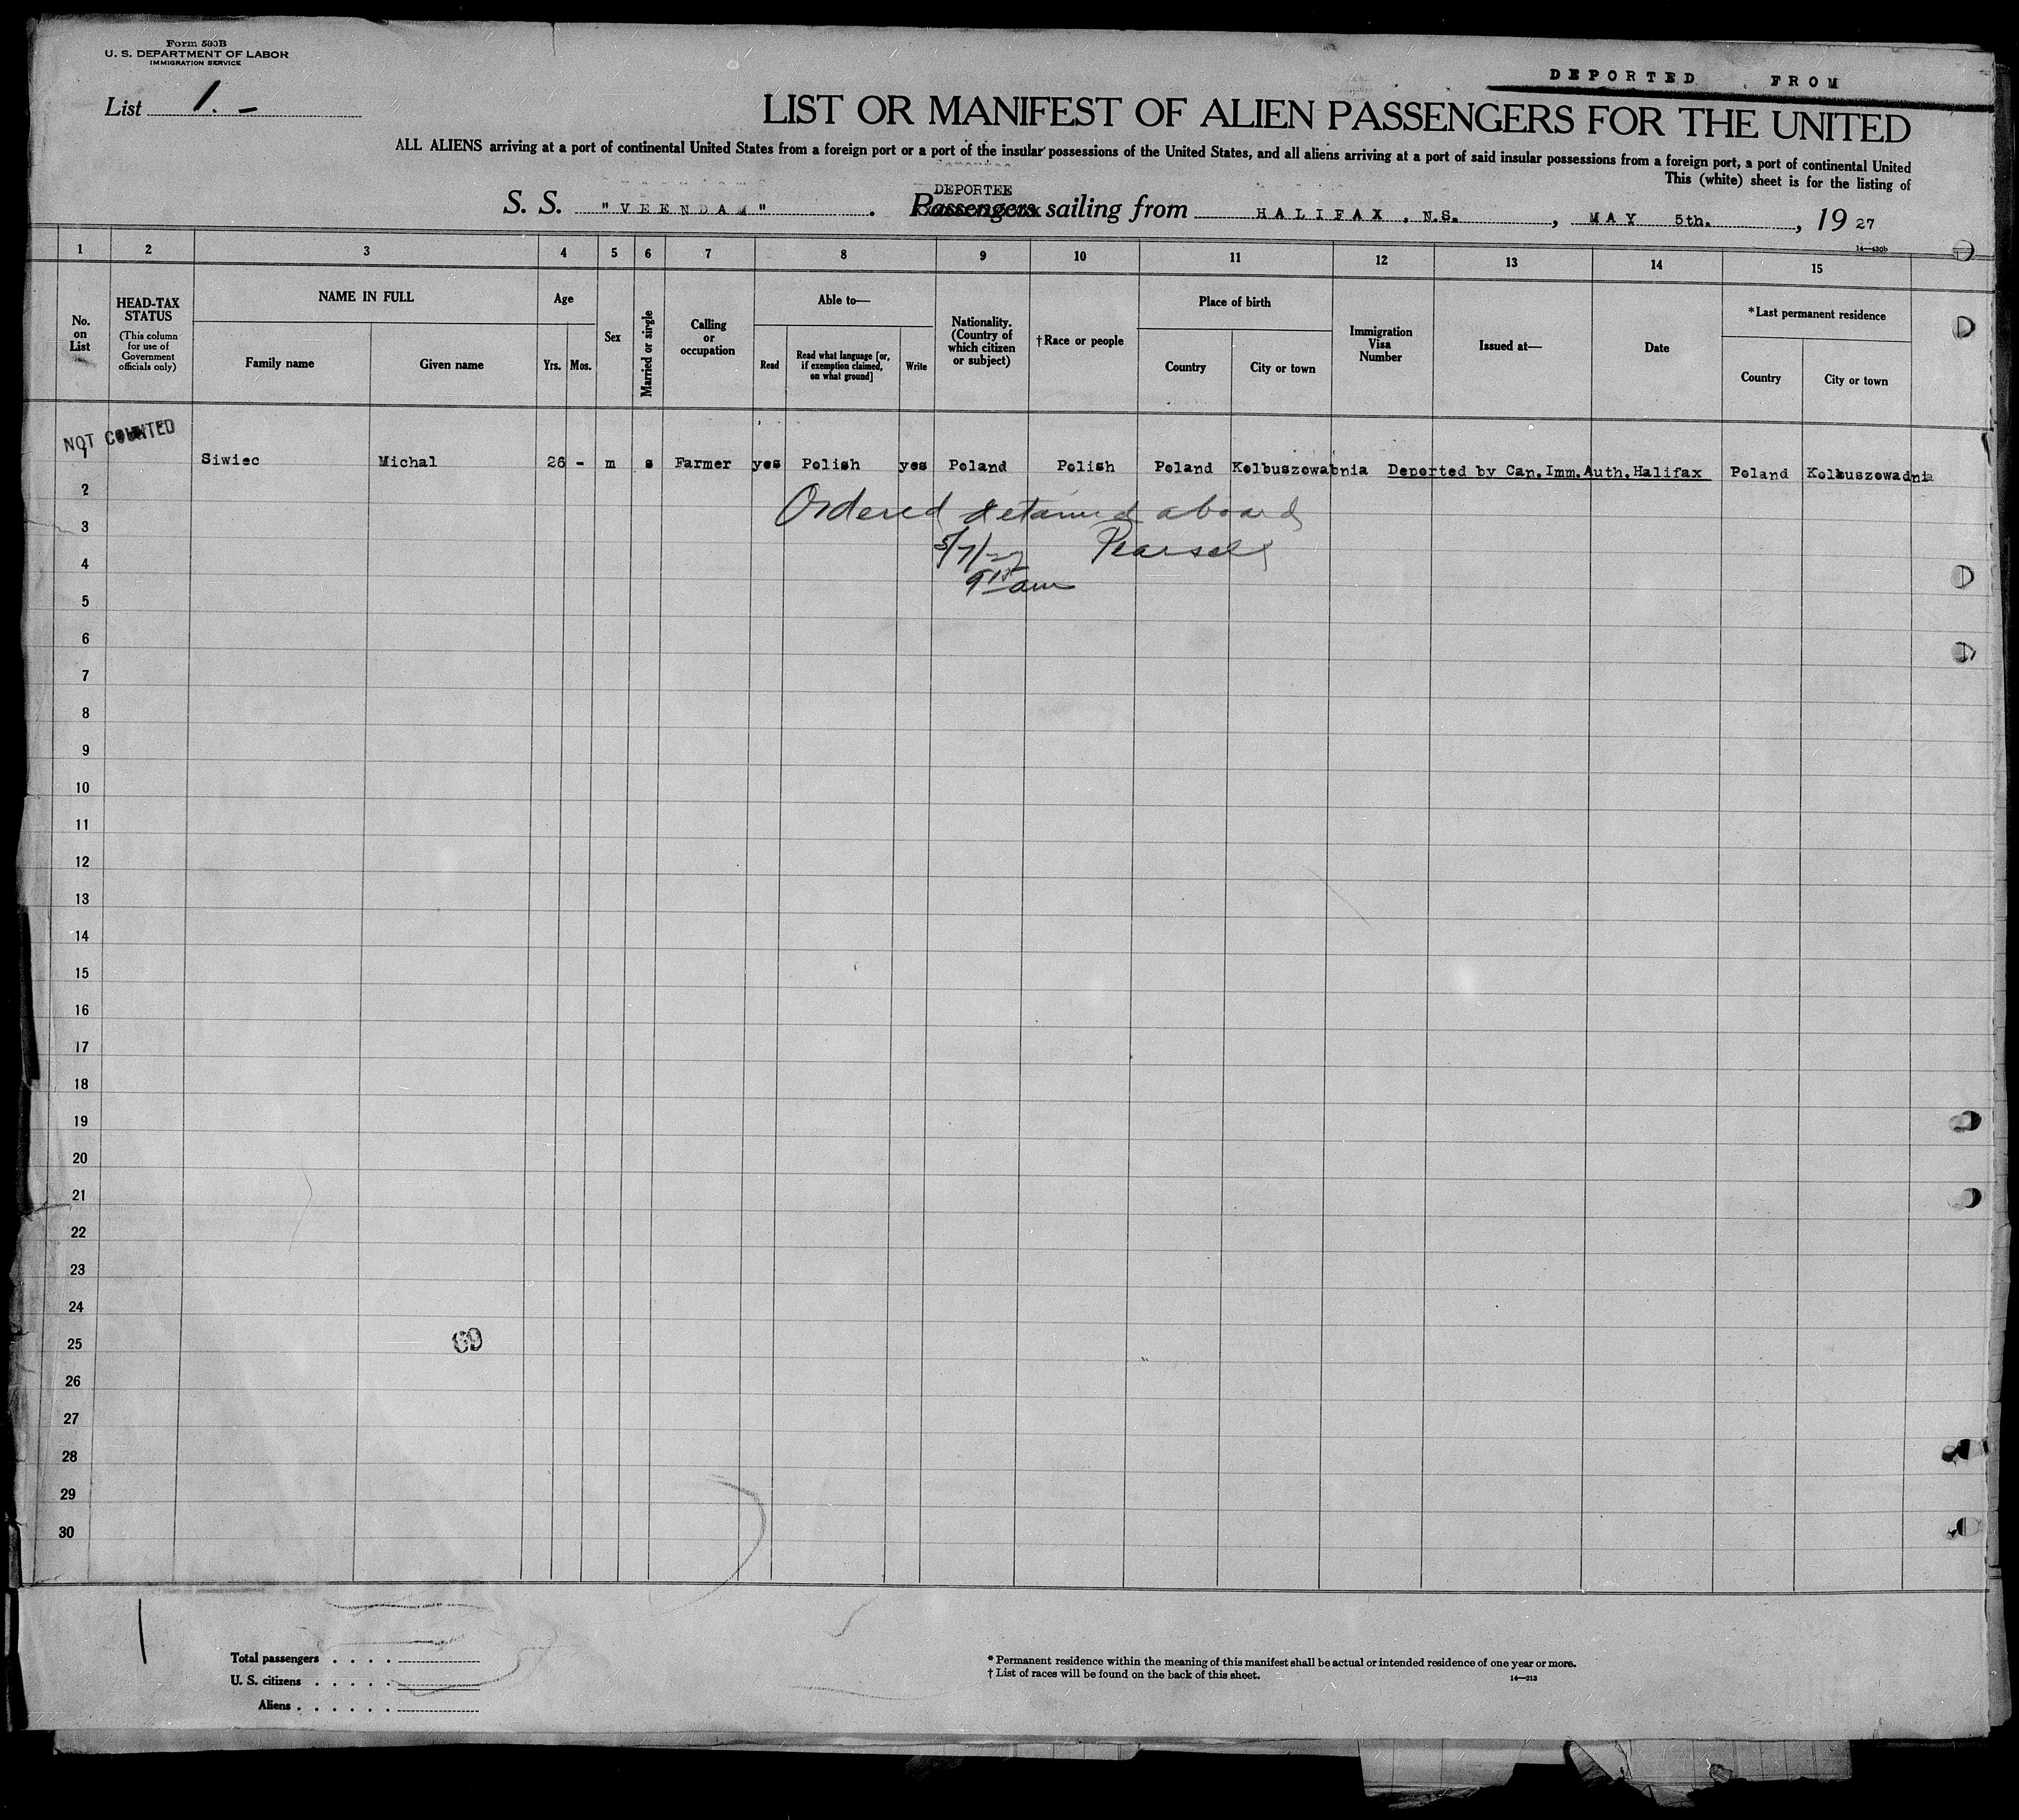 Form 500B
U. S. DEPARTMENT OF LABOR
IMMIGRATION SERVICE
DEPORTED FROM
List 1. -
LIST OR MANIFEST OF ALIEN PASSENGERS FOR THE UNITED
ALL ALIENS arriving at a port of continental United States from a foreign port or a port of the insular possessions of the United States, and all aliens arriving at a port of said insular possessions from a foreign port, a port of continental United
This (white) sheet is for the listing of
DEPORTEE
S. S. "VEENDAM". Passengers sailing from HALIFAX, N.S., MAY 5th., 1927
14—430b
1 2 3 4 5 6 7 8 9 10 11 12 13 14 15
No. on List
HEAD-TAX STATUS
(This column for use of Government officials only)
NAME IN FULL
Family name Given name
Age
Yrs. Mos.
Sex
Married or single
Calling or occupation
Able to—
Read
Read what language [or, if exemption claimed, on what ground]
Write
Nationality. (Country of which citizen or subject)
†Race or people
Place of birth
Country City or town
Immigration Visa Number
Issued at—
Date
*Last permanent residence
Country City or town
NOT COUNTED
1 Siwiec Michal 26 - m s Farmer yes Polish yes Poland Polish Poland Kolbuszowabnia Deported by Can.Imm.Auth.Halifax Poland Kolbuszowadnia
2 Ordered detained aboard
3 5/7/27
4 am
5
6
7
8
9
10
11
12
13
14
15
16
17
18
19
20
21
22
23
24
25 69
26
27
28
29
30
Total passengers . . . .
U. S. citizens . . . . .
Aliens . . . . . .
* Permanent residence within the meaning of this manifest shall be actual or intended residence of one year or more.
† List of races will be found on the back of this sheet.
14—213